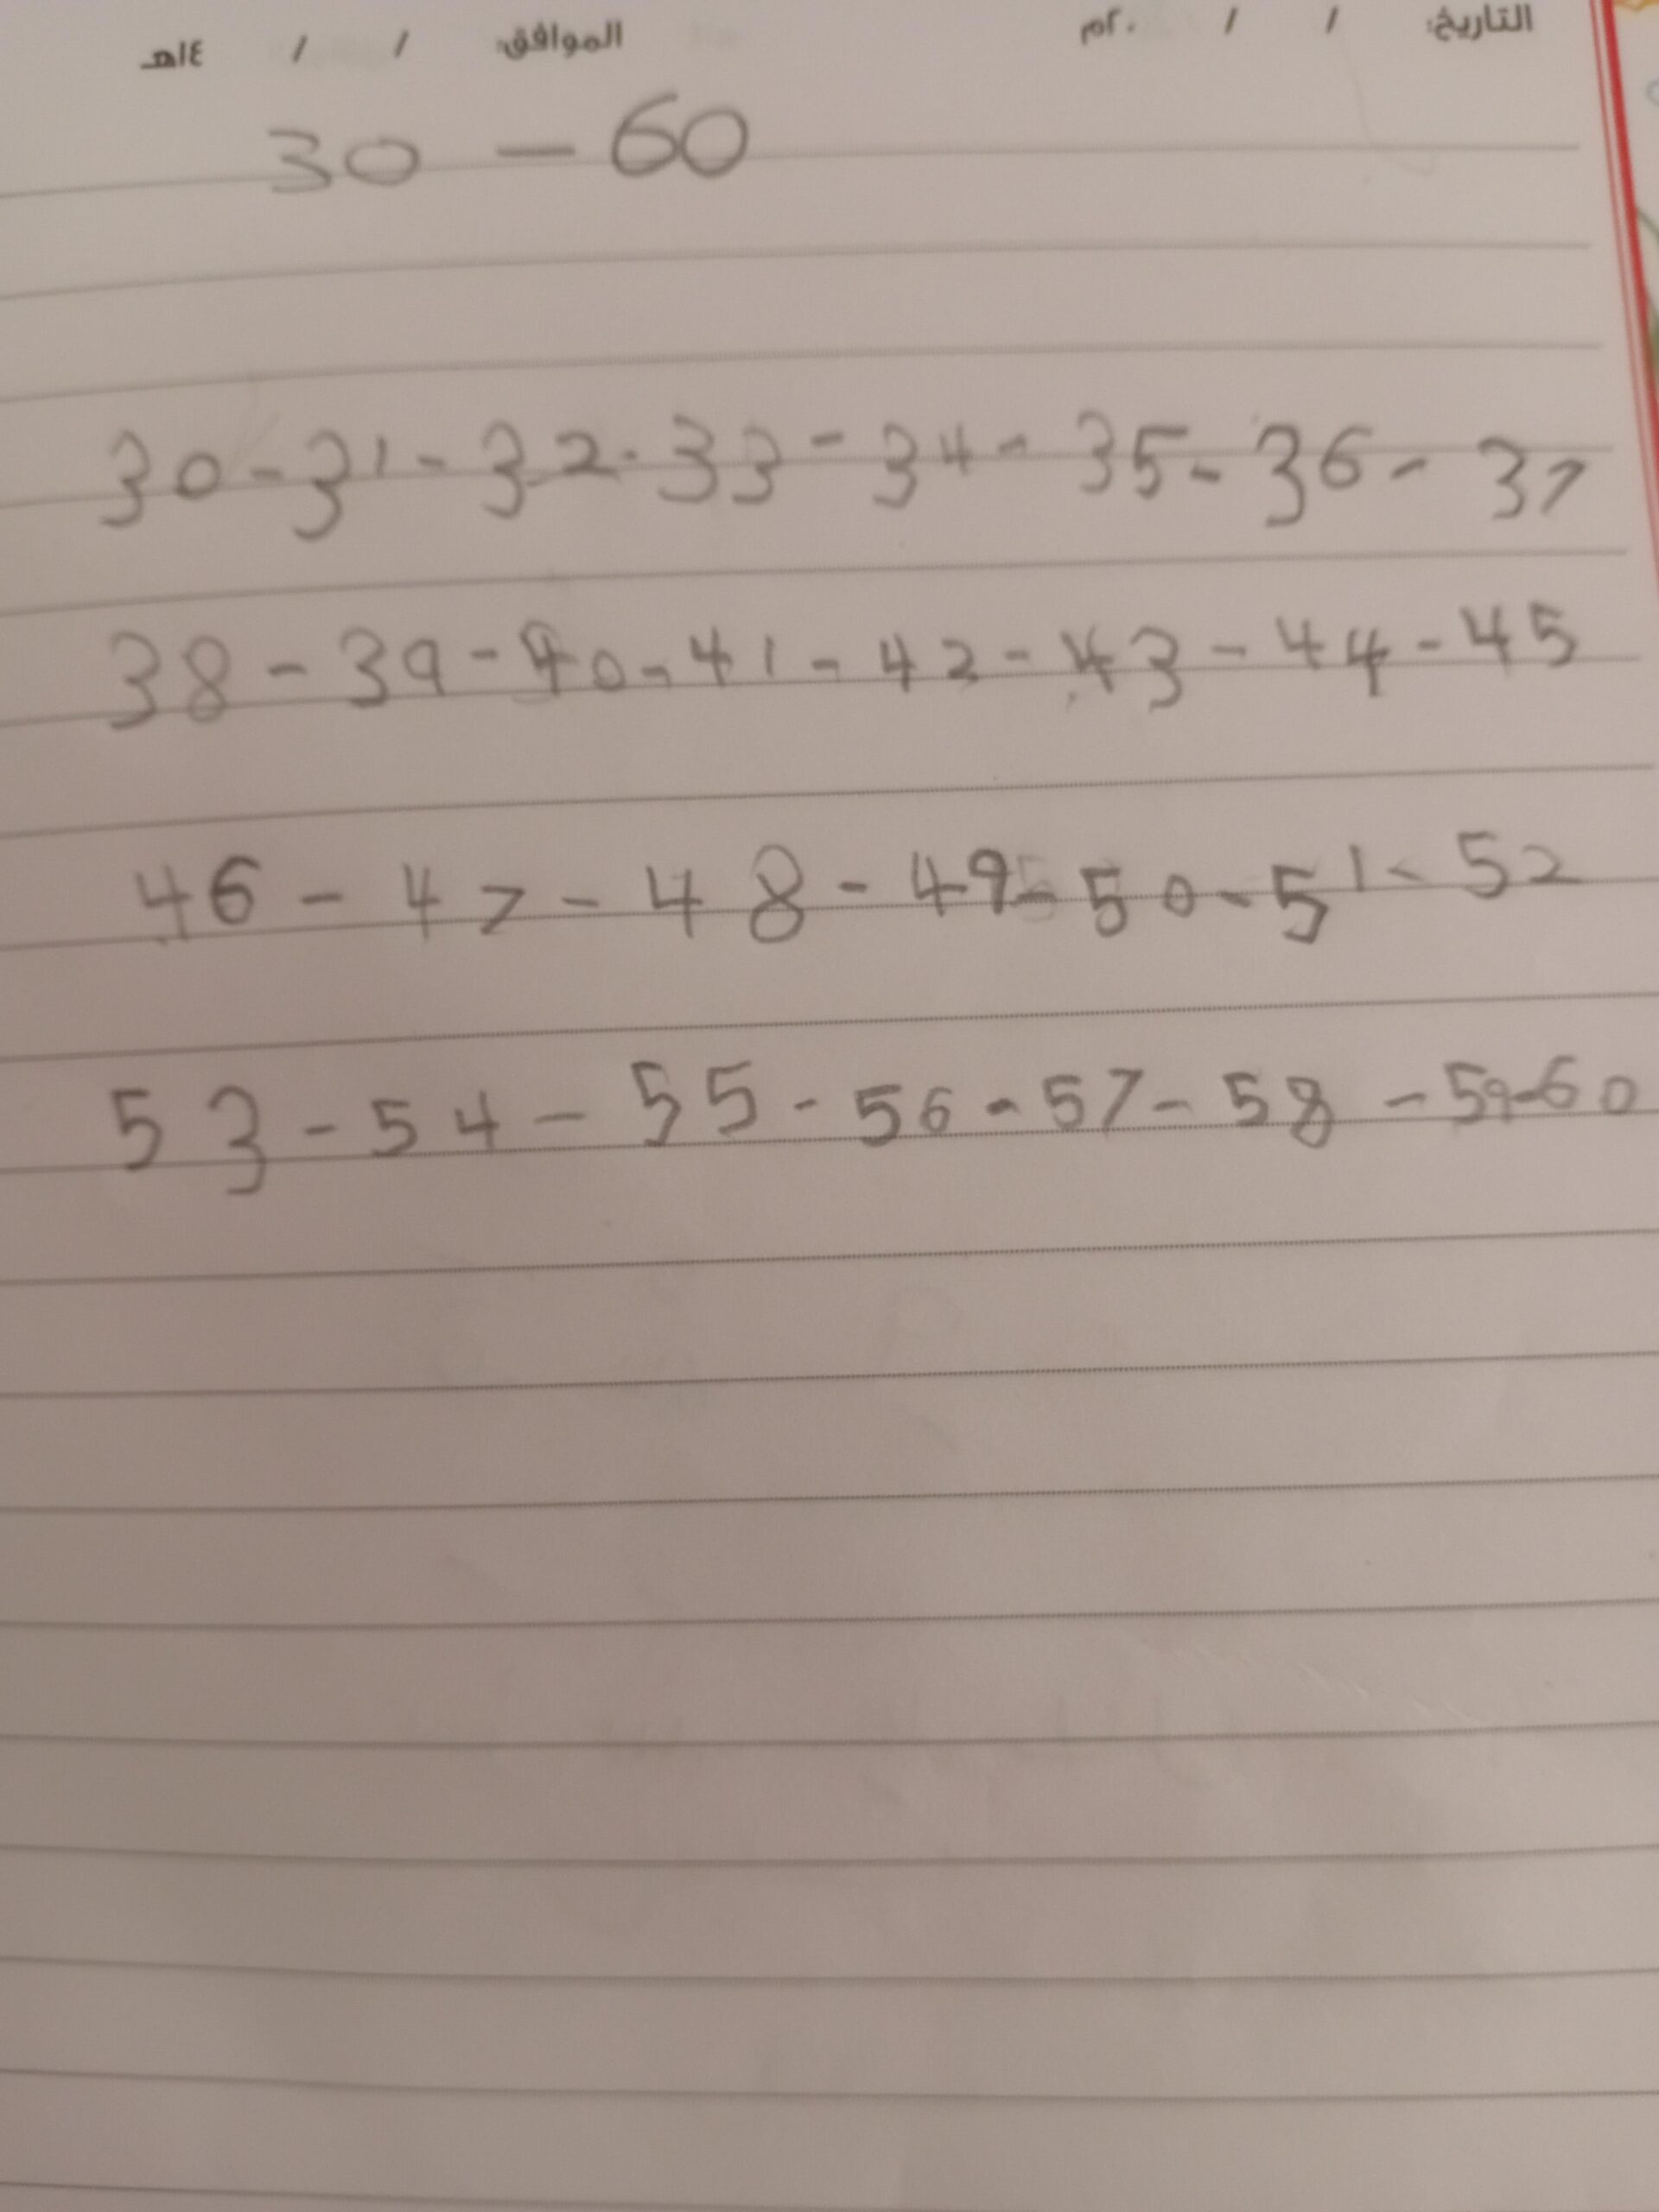 التاريخ: / / ٢٠م الموافق: / / ١٤هـ
30 - 60
30 - 31 - 32 - 33 - 34 - 35 - 36 - 37
38 - 39 - 40 - 41 - 42 - 43 - 44 - 45
46 - 47 - 48 - 49 - 50 - 51 - 52
53 - 54 - 55 - 56 - 57 - 58 - 59 - 60